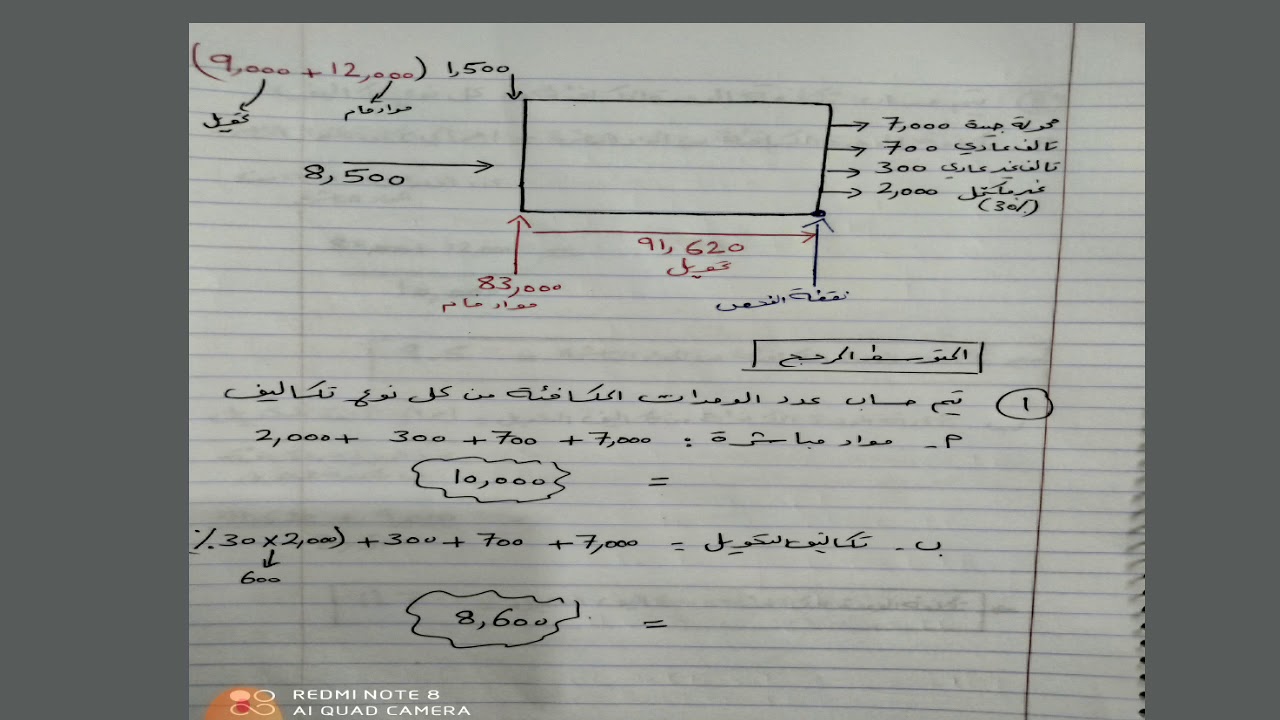 (9,000 + 12,000) 1,500
مواد خام
تحويل
محولة جيدة 7,000
تالف عادي 700
تالف غير عادي 300
غير مكتمل 2,000
(30%)
8,500
91,620
تحويل
83,000
مواد خام
نقطة الفحص
المتوسط المرجح
1 تيم حساب عدد الوحدات المكافئة من كل نوع تكاليف
م - مواد مباشرة : 7,000 + 700 + 300 + 2,000
= 10,000
ب - تكاليف التحويل = 7,000 + 700 + 300 + (2,000 × 30%
600
= 8,600
REDMI NOTE 8
AI QUAD CAMERA